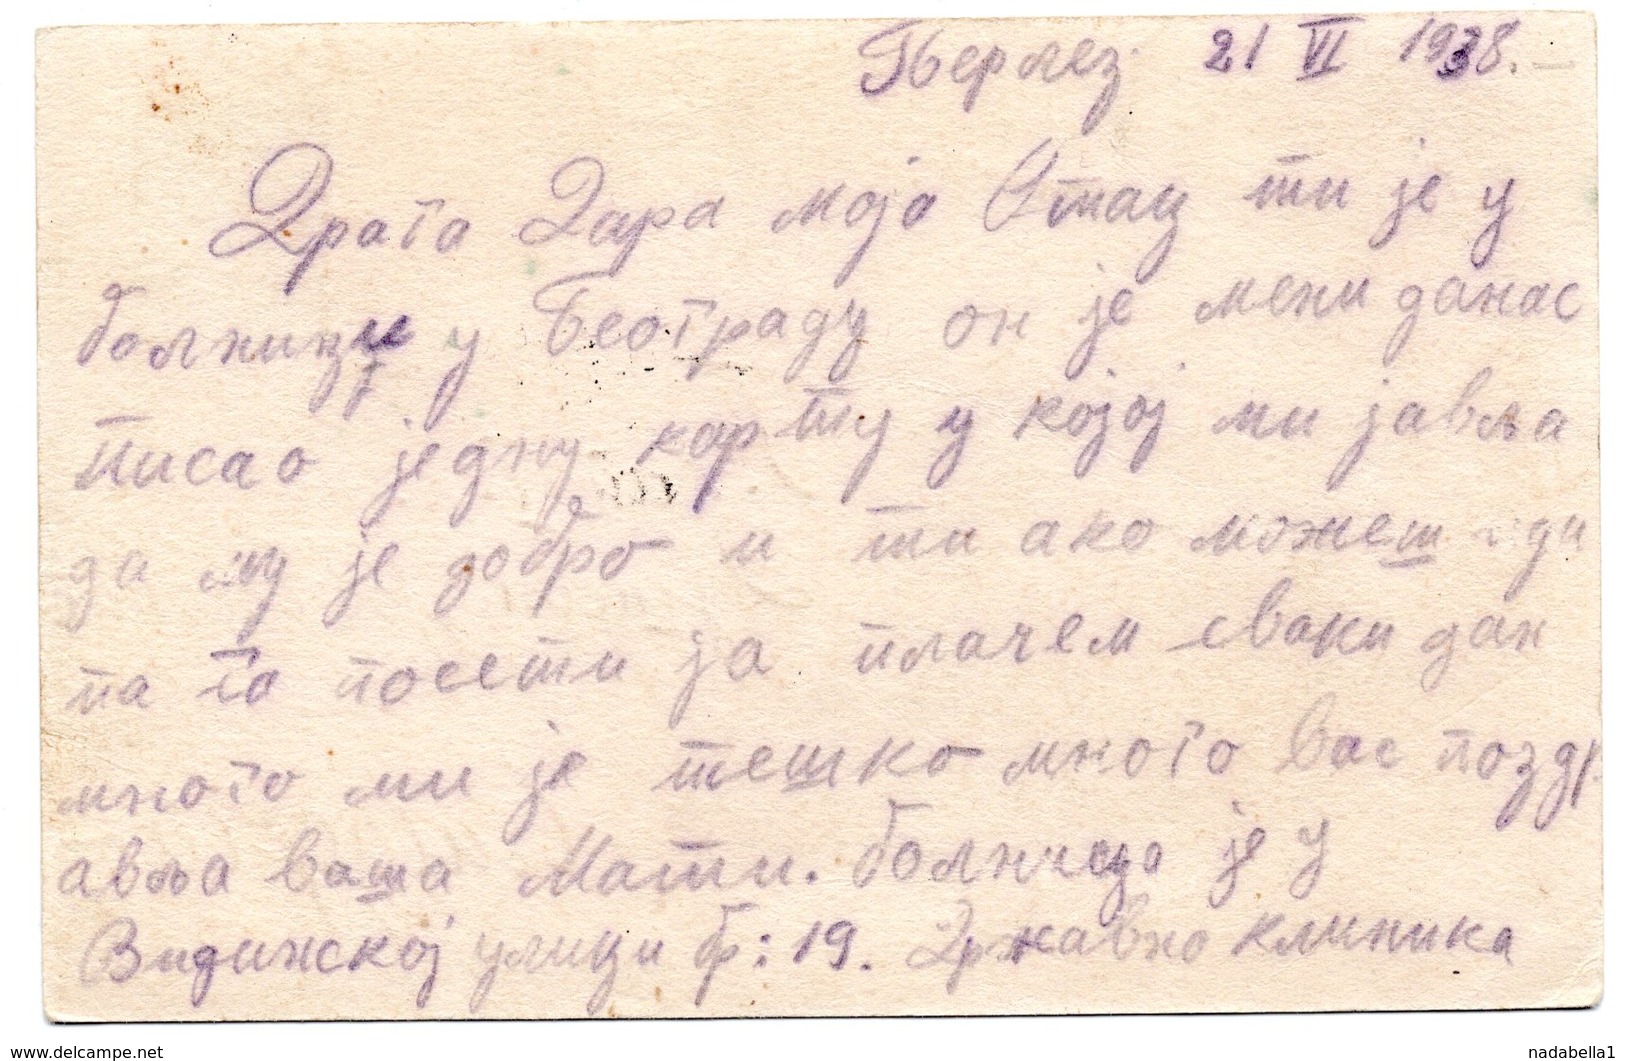 Перлез. 21 VI 1938.
Драга Дара моја Отац ти је у
болници у Београду он је мени данас
писао једну карту у којој ми јавља
да му је добро и ти ако можеш иди
па га посети ја плачем сваки дан
много ми је тешко много вас поздр
авља ваша Мати. болница је у
Видинској улици бр: 19. Државно клиника
www.delcampe.net
nadabella1